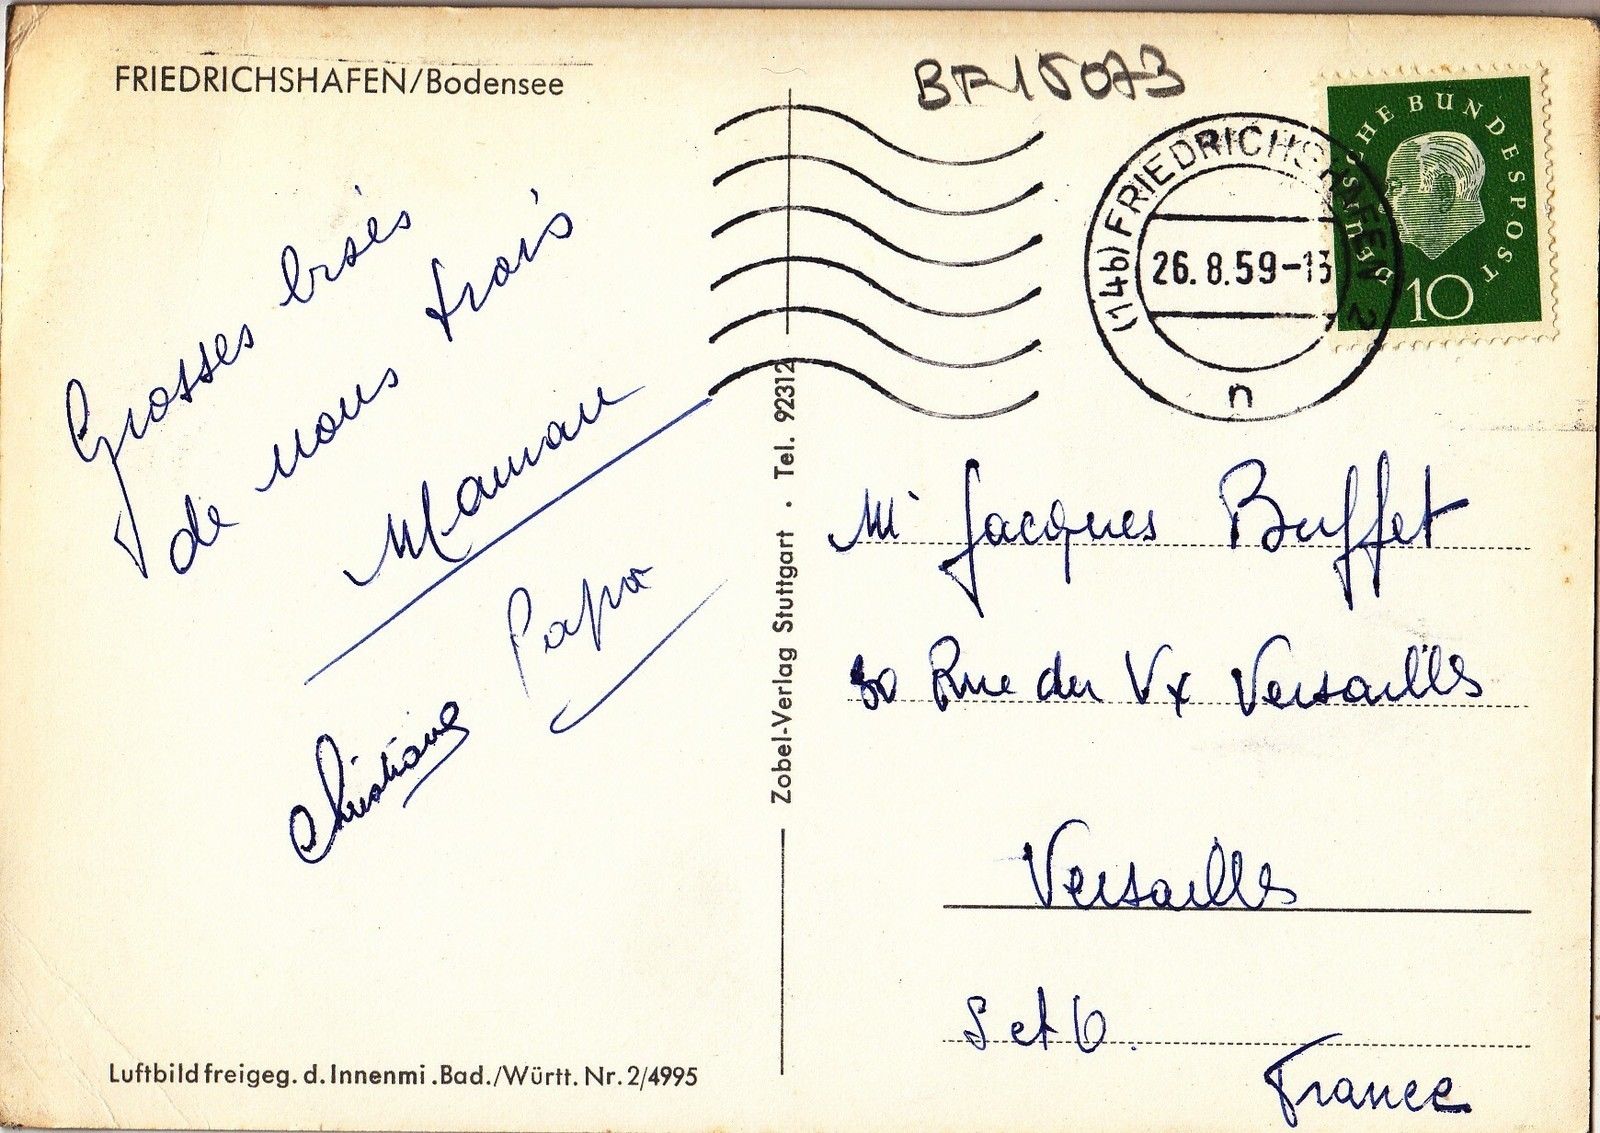 FRIEDRICHSHAFEN/Bodensee
BR15073
(14b) FRIEDRICHSHAFEN 2
26.8.59-13
n
DEUTSCHE BUNDESPOST
10
Grosses bisés
de nous trois
Maman
Papa
Christiane
Zobel-Verlag Stuttgart · Tel. 92312
Mr Jacques Buffet
30 Rue du Vx Versailles
Versailles
S et O.
France
Luftbild freigeg. d. Innenmi .Bad./Württ. Nr. 2/4995